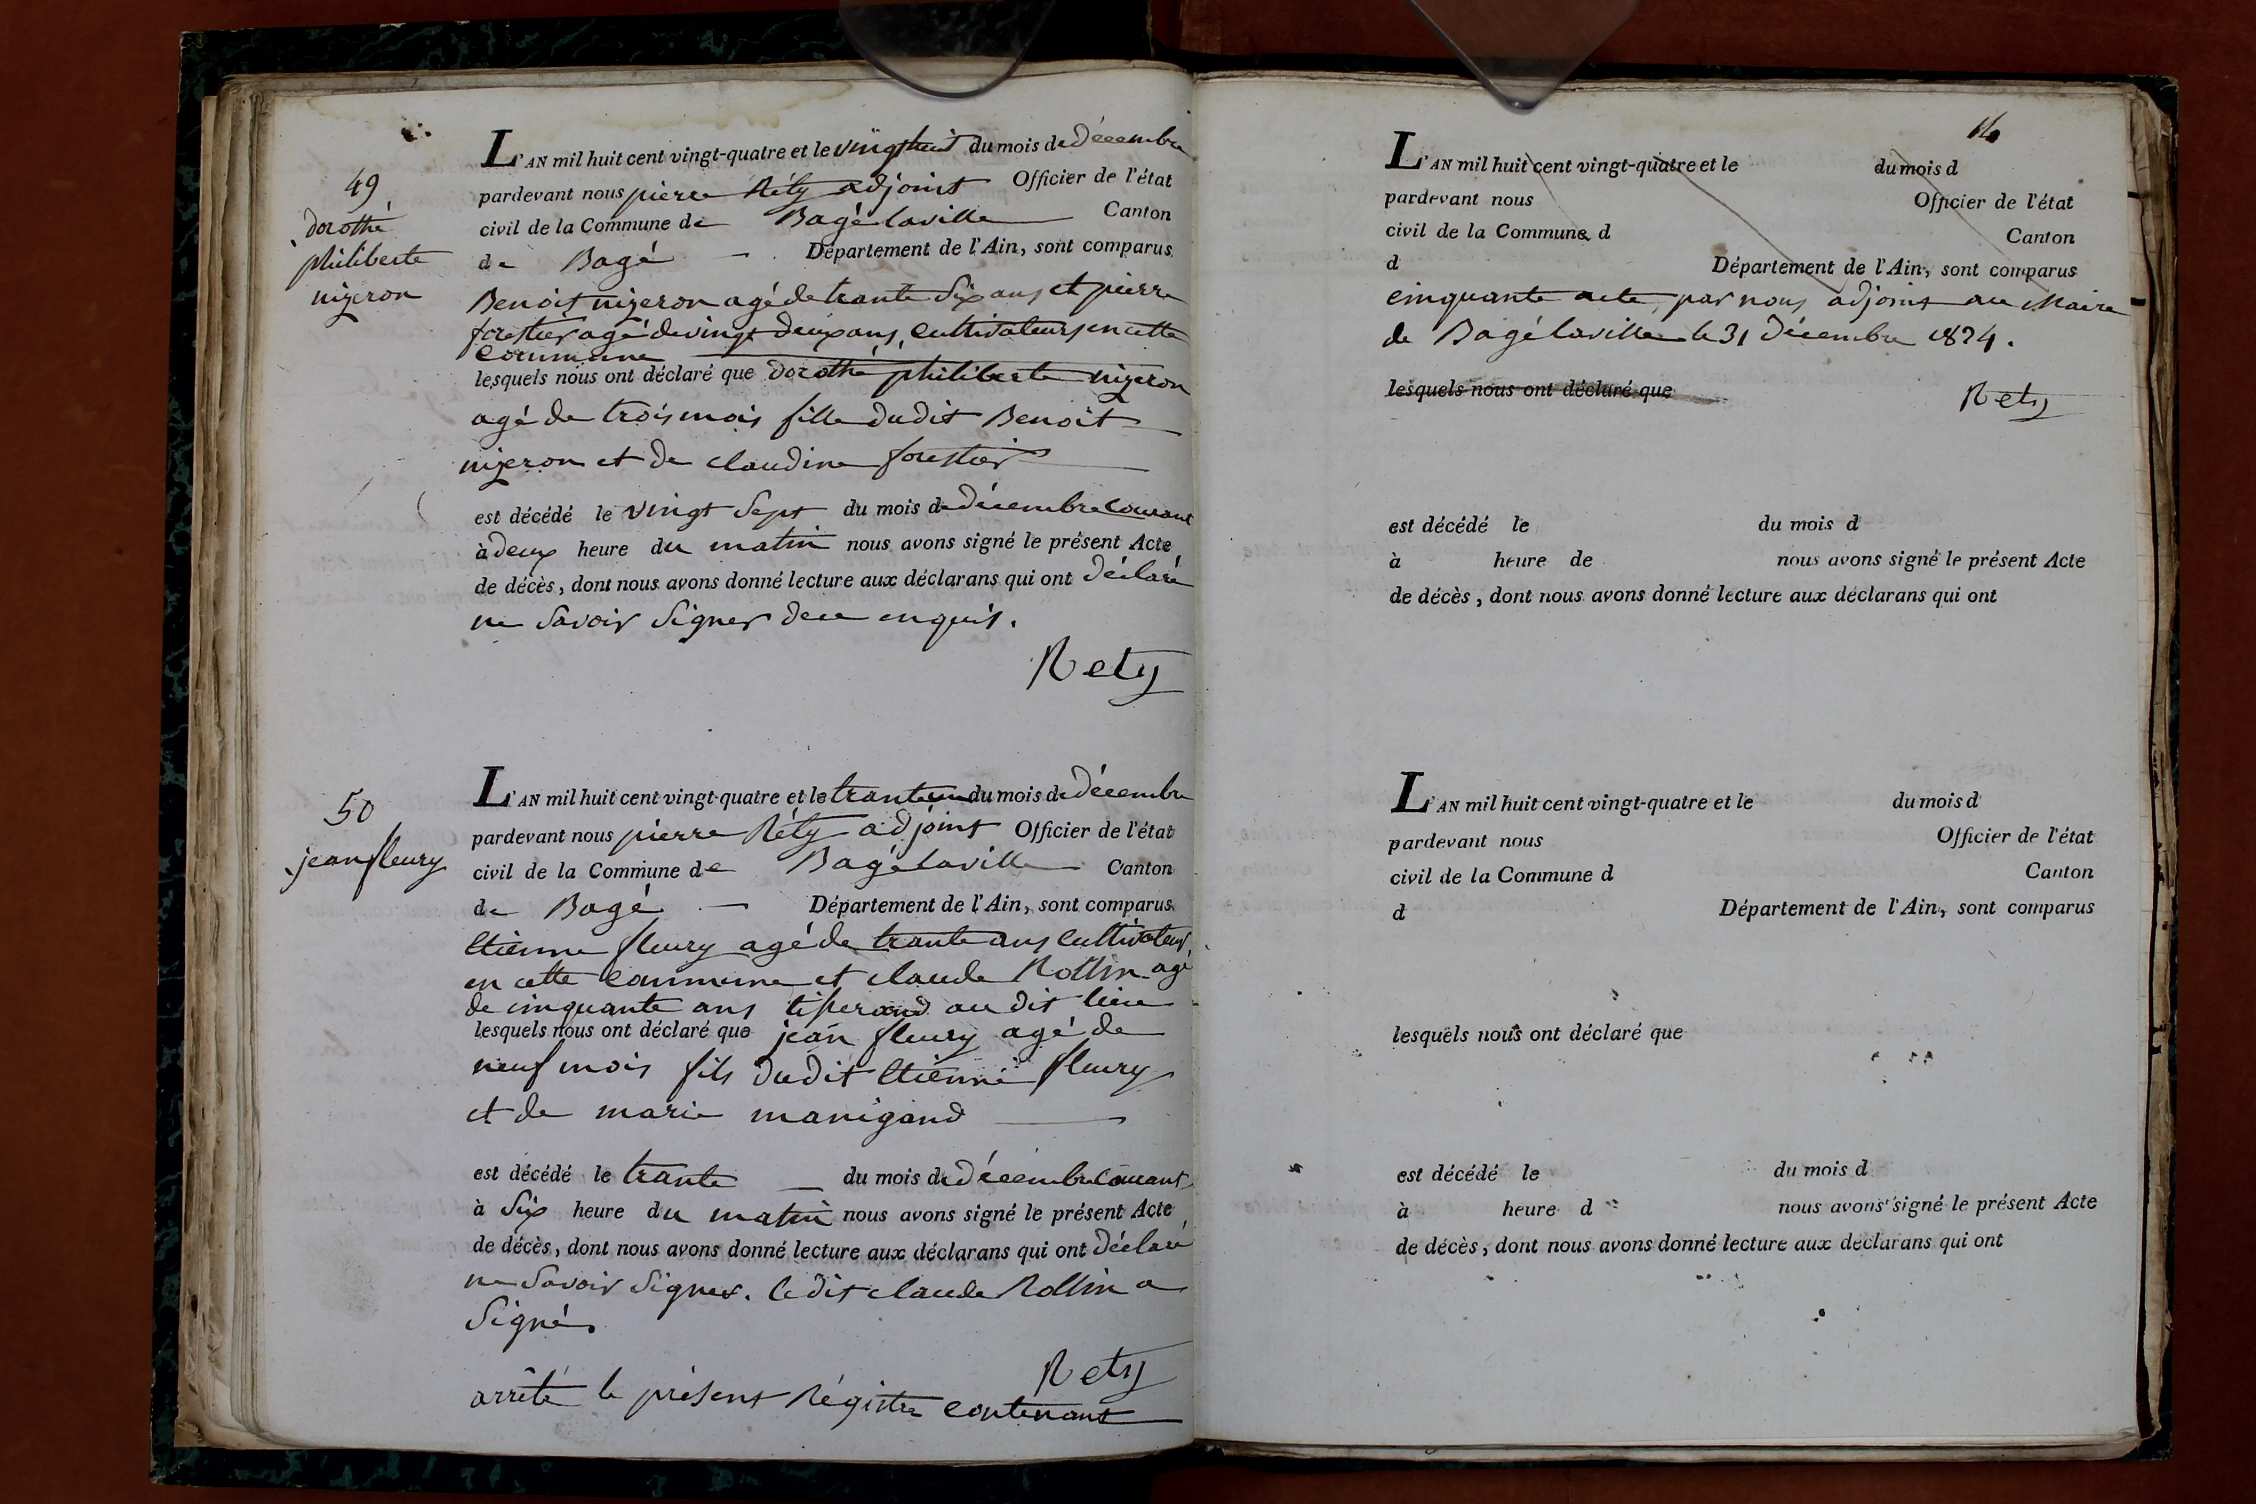 49
dorothé
philiberte
nizeron
L'AN mil huit cent vingt-quatre et le vingt huit du mois de décembre
pardevant nous pierre Réty adjoint Officier de l'état
civil de la Commune de Bagé laville Canton
de Bagé Département de l'Ain, sont comparus
Benoit nizeron agé de trante Six ans et pierre
forestier agé de vingt deux ans, cultivateurs en cette
commune
lesquels nous ont déclaré que dorothé philiberte nizeron
agé de trois mois fille dudit Benoit
nizeron et de claudine forestier
est décédé le vingt Sept du mois de décembre courant
à deux heure du matin nous avons signé le présent Acte
de décès, dont nous avons donné lecture aux déclarans qui ont déclaré
ne Savoir Signer de ce enquis.
Rety
50
jean fleury
L'AN mil huit cent vingt-quatre et le trante un du mois de décembre
pardevant nous pierre Réty adjoint Officier de l'état
civil de la Commune de Bagé laville Canton
de Bagé Département de l'Ain, sont comparus
Etienne fleury agé de trante ans cultivateur
en cette commune et claude Rollin agé
de cinquante ans tisserand au dit lieu
lesquels nous ont déclaré que jean fleury agé de
neuf mois fils dudit Etienne fleury
et de marie manigand
est décédé le trante du mois de décembre courant
à Six heure du matin nous avons signé le présent Acte
de décès, dont nous avons donné lecture aux déclarans qui ont déclaré
ne Savoir Signer. le dit claude Rollin a
Signé.
Rety
arrêté le présent Régistre contenant
L'AN mil huit cent vingt-quatre et le du mois d
pardevant nous Officier de l'état
civil de la Commune d Canton
d Département de l'Ain, sont comparus
cinquante acte, par nous adjoint au Maire
de Bagé laville le 31 décembre 1824.
lesquels nous ont déclaré que
Rety
est décédé le du mois d
à heure de nous avons signé le présent Acte
de décès, dont nous avons donné lecture aux déclarans qui ont
L'AN mil huit cent vingt-quatre et le du mois d
pardevant nous Officier de l'état
civil de la Commune d Canton
d Département de l'Ain, sont comparus
lesquels nous ont déclaré que
est décédé le du mois d
à heure d nous avons signé le présent Acte
de décès, dont nous avons donné lecture aux déclarans qui ont